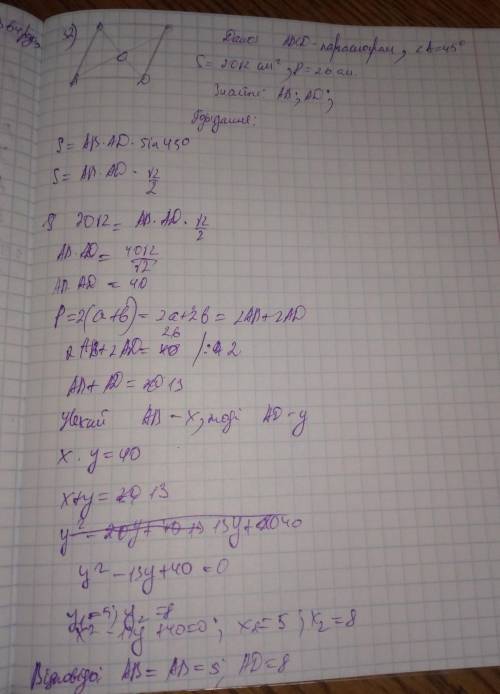 2)
Дано: ABCD - паралограм, ∠A=45°
S = 20√2 см², P=26 см.
Знайти: AB; AD;
S = AB·AD·sin 45°
S = AB·AD · √2/2
20√2 = AB·AD·√2/2
AB·AD = 40√2/√2
AB·AD = 40
P=2(a+b) = 2a+2b = 2AB+2AD
2AB+2AD = 26 /:2
AB+AD = 13
Нехай AB - x, тоді AD - y
x · y = 40
x+y = 13
y² - 13y+40 = 0
y₁=5; y₂=8
x₁=5; x₂=8
Відповідь: AB = 5; AD=8